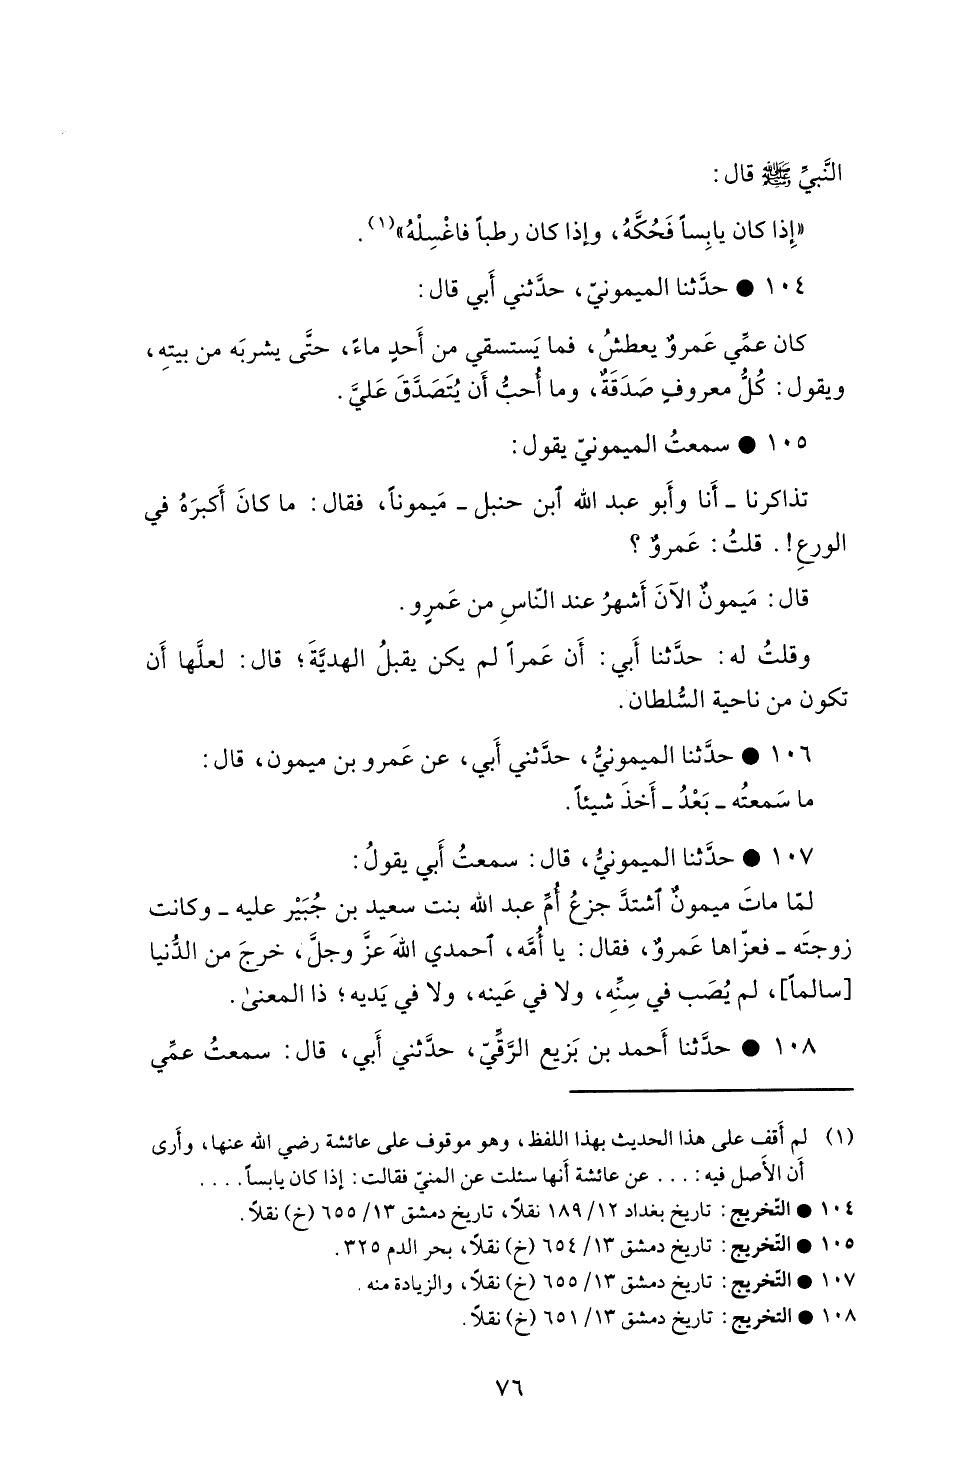 النَّبيِّ ﷺ قال:
«إِذا كان يابِساً فَحُكَّهُ، وإذا كان رطباً فاغْسِلْهُ»(١).
١٠٤ ● حدَّثنا الميمونيّ، حدَّثني أَبي قال:
كان عمِّي عَمروٌ يعطشُ، فما يَستسقي من أَحدٍ ماءً، حتَّى يشربَه من بيتهِ،
ويقول: كُلُّ معروفٍ صَدَقَةٌ، وما أُحبُّ أَن يُتَصَدَّقَ عَليَّ.
١٠٥ ● سمعتُ الميمونيّ يقول:
تذاكرنا ـ أَنا وأَبو عبد الله ٱبن حنبل ـ مَيموناً، فقال: ما كانَ أَكبرَهُ في
الورعِ!. قلتُ: عَمروٌ ؟
قال: مَيمونٌ الآنَ أَشهرُ عند النّاسِ من عَمرٍو.
وقلتُ له: حدَّثنا أَبي: أَن عَمراً لم يكن يقبلُ الهديَّةَ؛ قال: لعلَّها أَن
تكون من ناحية السُّلطان.
١٠٦ ● حدَّثنا الميمونيُّ، حدَّثني أَبي، عن عَمرو بن ميمون، قال:
ما سَمعتُه ـ بَعْدُ ـ أَخذَ شيئاً.
١٠٧ ● حدَّثنا الميمونيُّ، قال: سمعتُ أَبي يقولُ:
لمّا ماتَ ميمونٌ ٱشتدَّ جزعُ أُمِّ عبد الله بنت سعيد بن جُبَيْر عليه ـ وكانت
زوجتَه ـ فعزّاها عَمروٌ، فقال: يا أُمَّه، ٱحمدي اللهَ عزَّ وجلَّ، خرجَ من الدُّنيا
[سالماً]، لم يُصَب في سِنِّه، ولا في عَينه، ولا في يَديه؛ ذا المعنىٰ.
١٠٨ ● حدَّثنا أَحمد بن بَزيع الرَّقِّيّ، حدَّثني أَبي، قال: سمعتُ عمِّي
(١) لم أَقف على هذا الحديث بهذا اللفظ، وهو موقوف على عائشة رضي الله عنها، وأَرى
أَن الأَصل فيه: ... عن عائشة أَنها سئلت عن المنيّ فقالت: إذا كان يابساً ....
١٠٤ ● التّخريج: تاريخ بغداد ١٢/ ١٨٩ نقلاً، تاريخ دمشق ١٣/ ٦٥٥ (خ) نقلاً.
١٠٥ ● التّخريج: تاريخ دمشق ١٣/ ٦٥٤ (خ) نقلاً، بحر الدم ٣٢٥.
١٠٧ ● التّخريج: تاريخ دمشق ١٣/ ٦٥٥ (خ) نقلاً، والزيادة منه.
١٠٨ ● التخريج: تاريخ دمشق ١٣/ ٦٥١ (خ) نقلاً.
٧٦